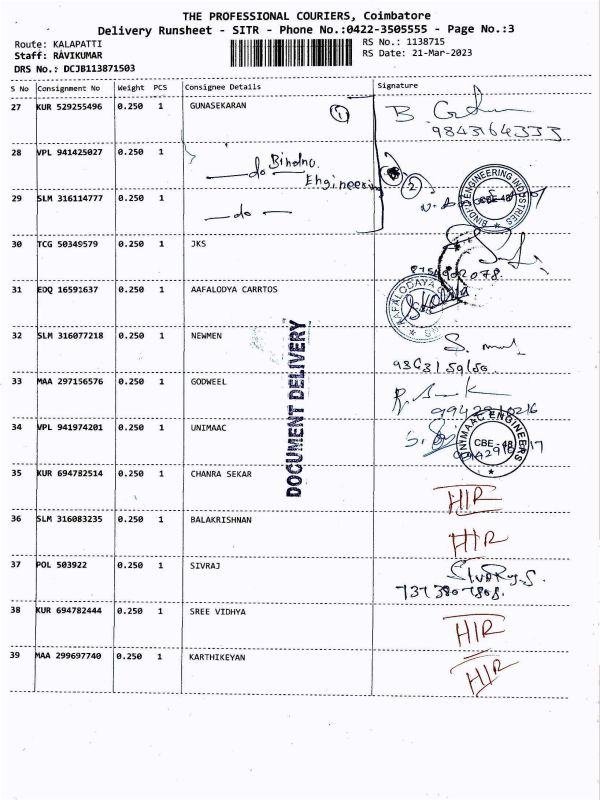 THE PROFESSIONAL COURIERS, Coimbatore
Delivery Runsheet - SITR - Phone No.:0422-3505555 - Page No.:3
Route: KALAPATTI
RS No.: 1138715
Staff: RAVIKUMAR
RS Date: 21-Mar-2023
DRS No.: DCJB113871503
S No Consignment No Weight PCS Consignee Details Signature
27 KUR 529255496 0.250 1 GUNASEKARAN 1
9843164333
28 VPL 941425027 0.250 1 do Bindhu Engineering
2
29 SLM 316114777 0.250 1 do
BINDHU ENGINEERING INDUSTRIES CBE-48
30 TCG 50349579 0.250 1 JKS
31 EDQ 16591637 0.250 1 AAFALODYA CARRTOS
AAFALODAYA
32 SLM 316077218 0.250 1 NEWMEN
9363159150
33 MAA 297156576 0.250 1 GODWEEL
9942910216
34 VPL 941974201 0.250 1 UNIMAAC
UNIMAAC ENGINEERS CBE-48
DOCUMENT DELIVERY
35 KUR 694782514 0.250 1 CHANRA SEKAR HIR
36 SLM 316083235 0.250 1 BALAKRISHNAN HIR
37 POL 503922 0.250 1 SIVRAJ
7373807808.
38 KUR 694782444 0.250 1 SREE VIDHYA HIR
39 MAA 299697740 0.250 1 KARTHIKEYAN HIR